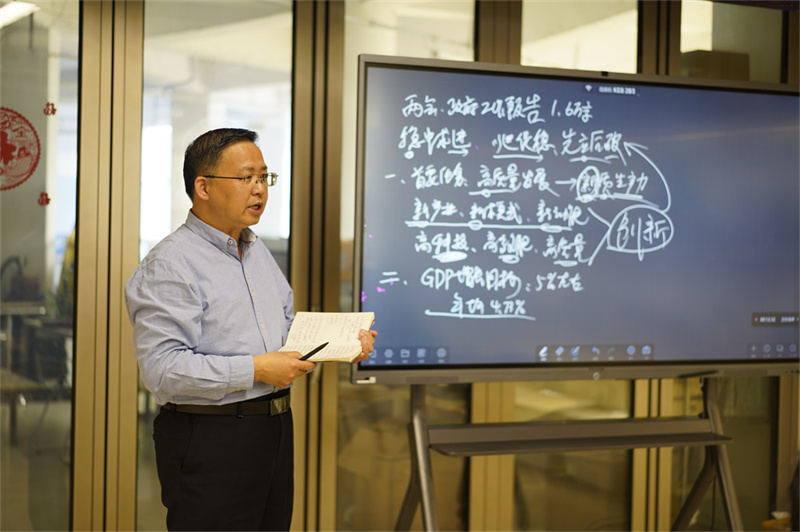 两会、政府工作报告 1.6万字
稳中求进 以进促稳、先立后破
一、首要任务 高质量发展→新质生产力
新产业、新模式、新动能 创新
高科技、高效能、高质量
二、GDP增长目标：5%左右
年均4.73%